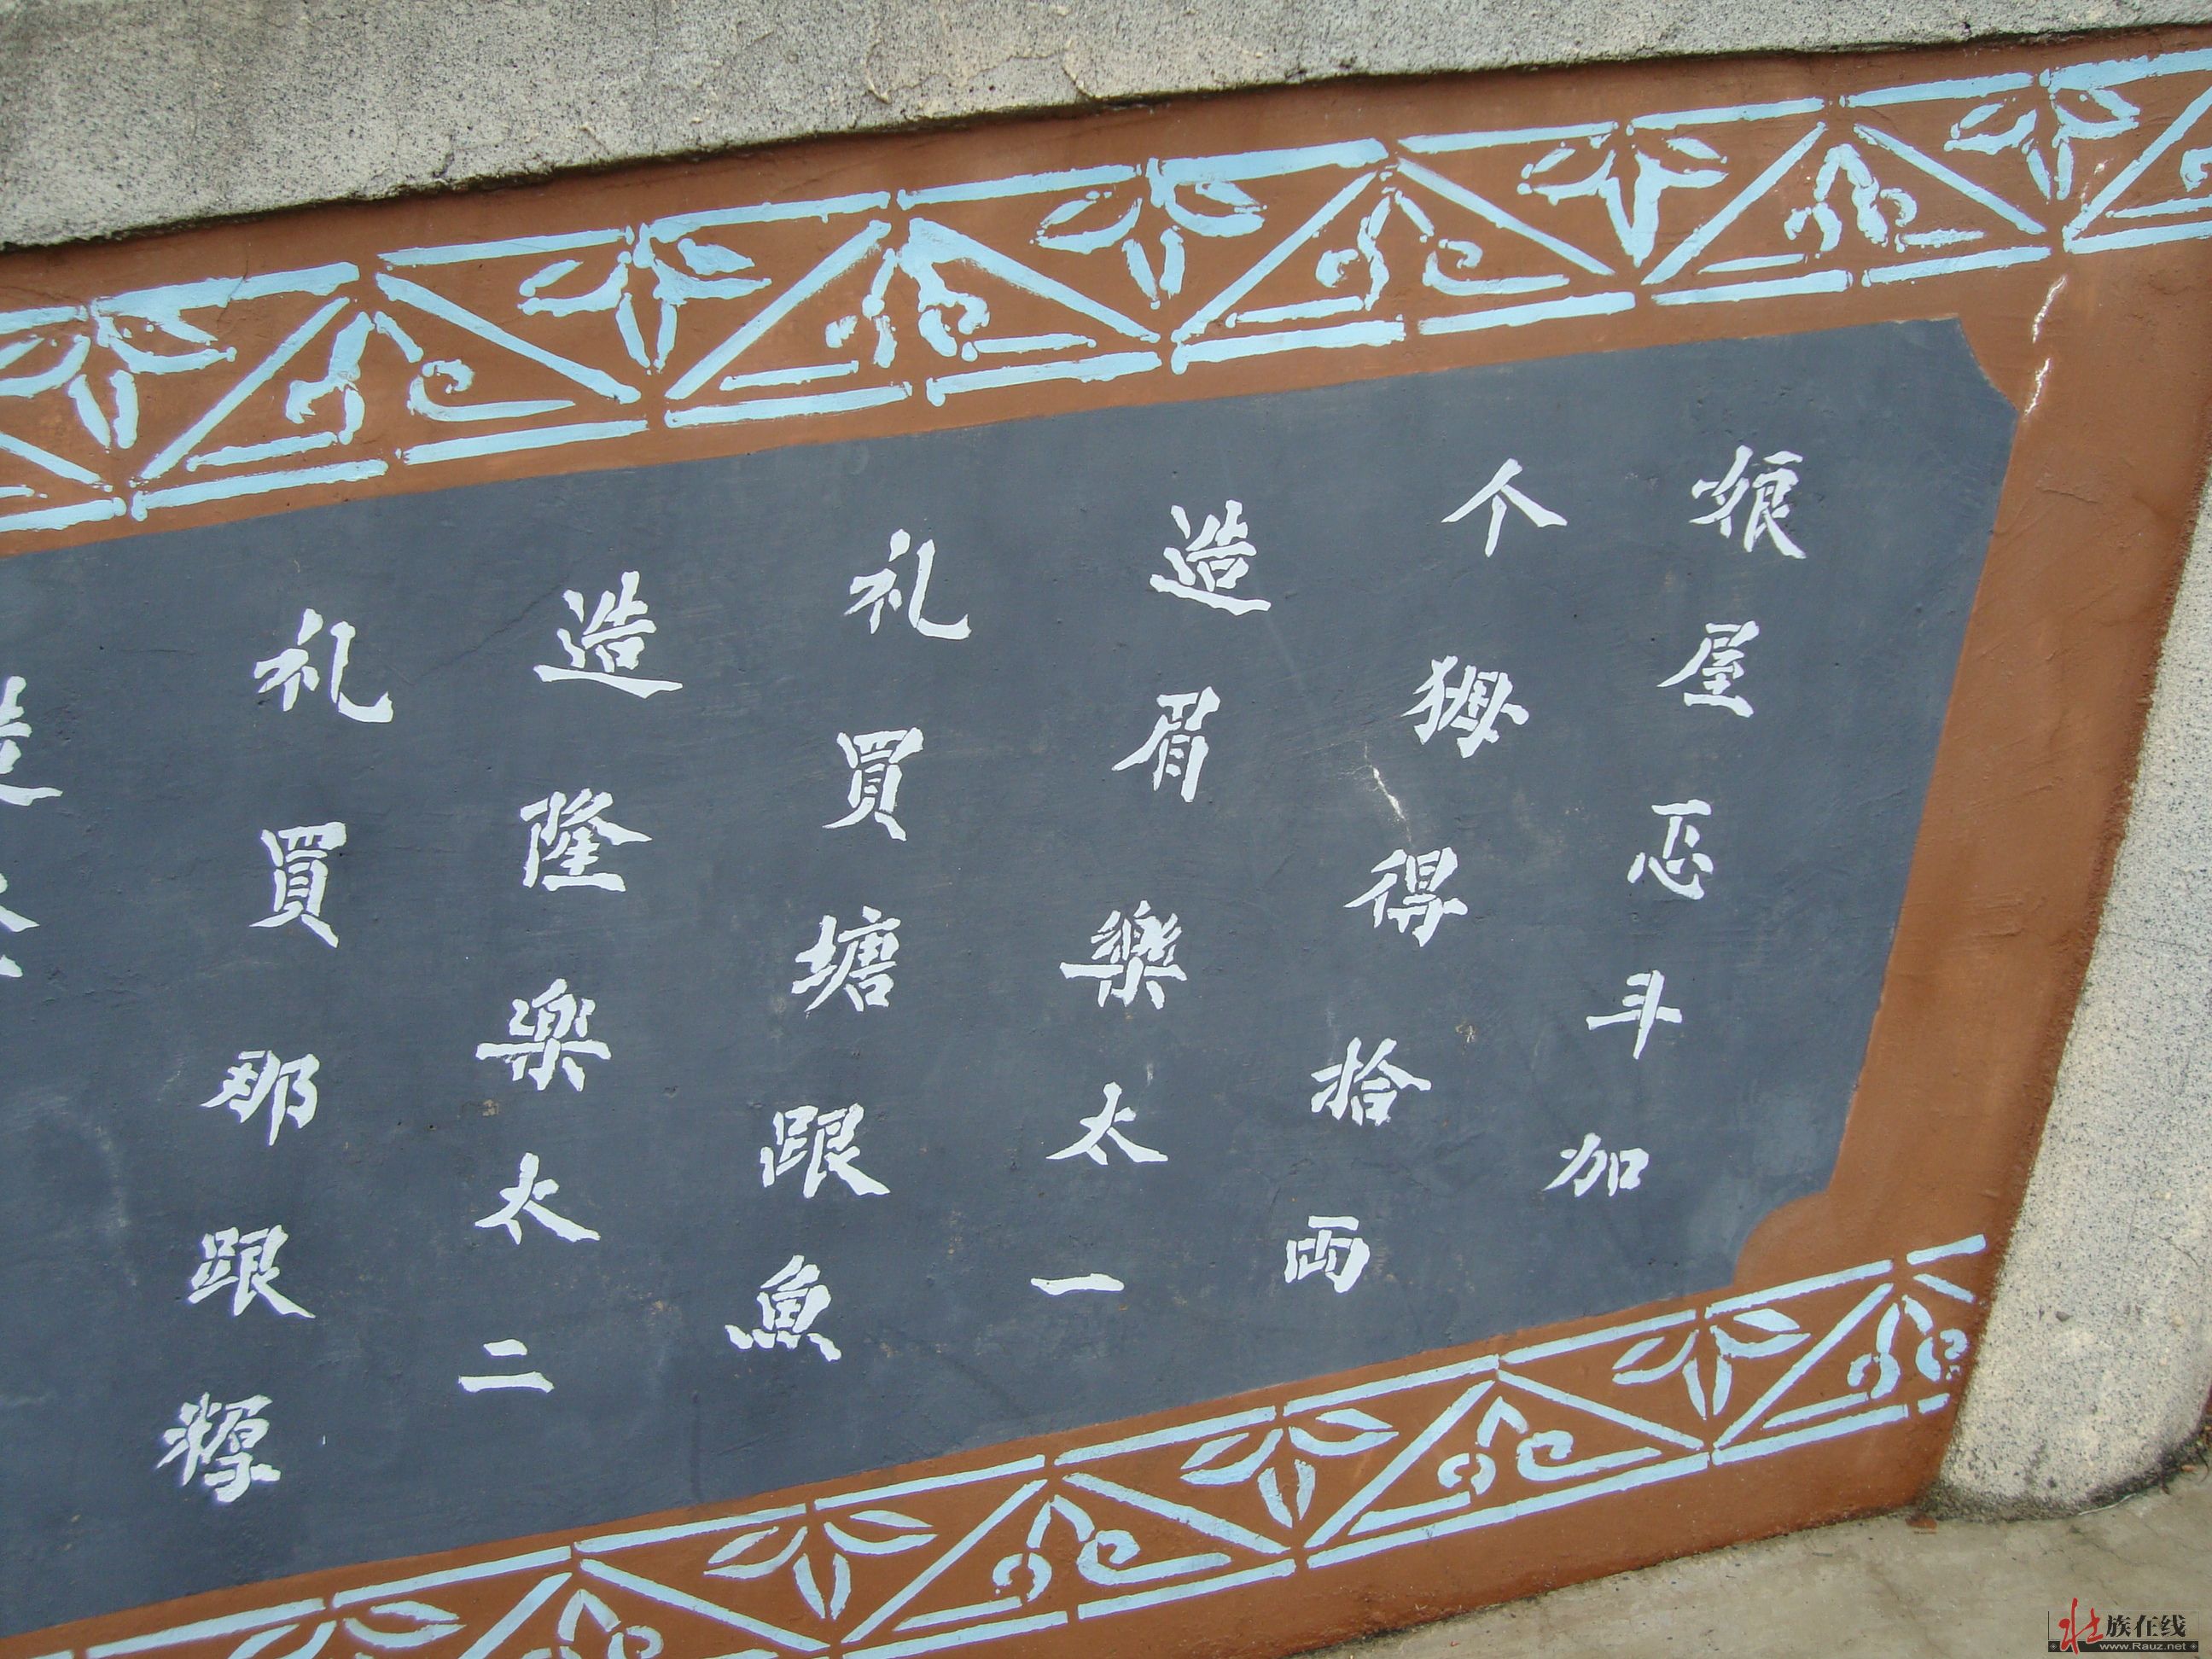 娘屋忑斗加
个㺃得拾両
造眉樂太一
礼買塘跟魚
造隆樂太二
礼買那跟糇
造
壮族在线
www.Rauz.net